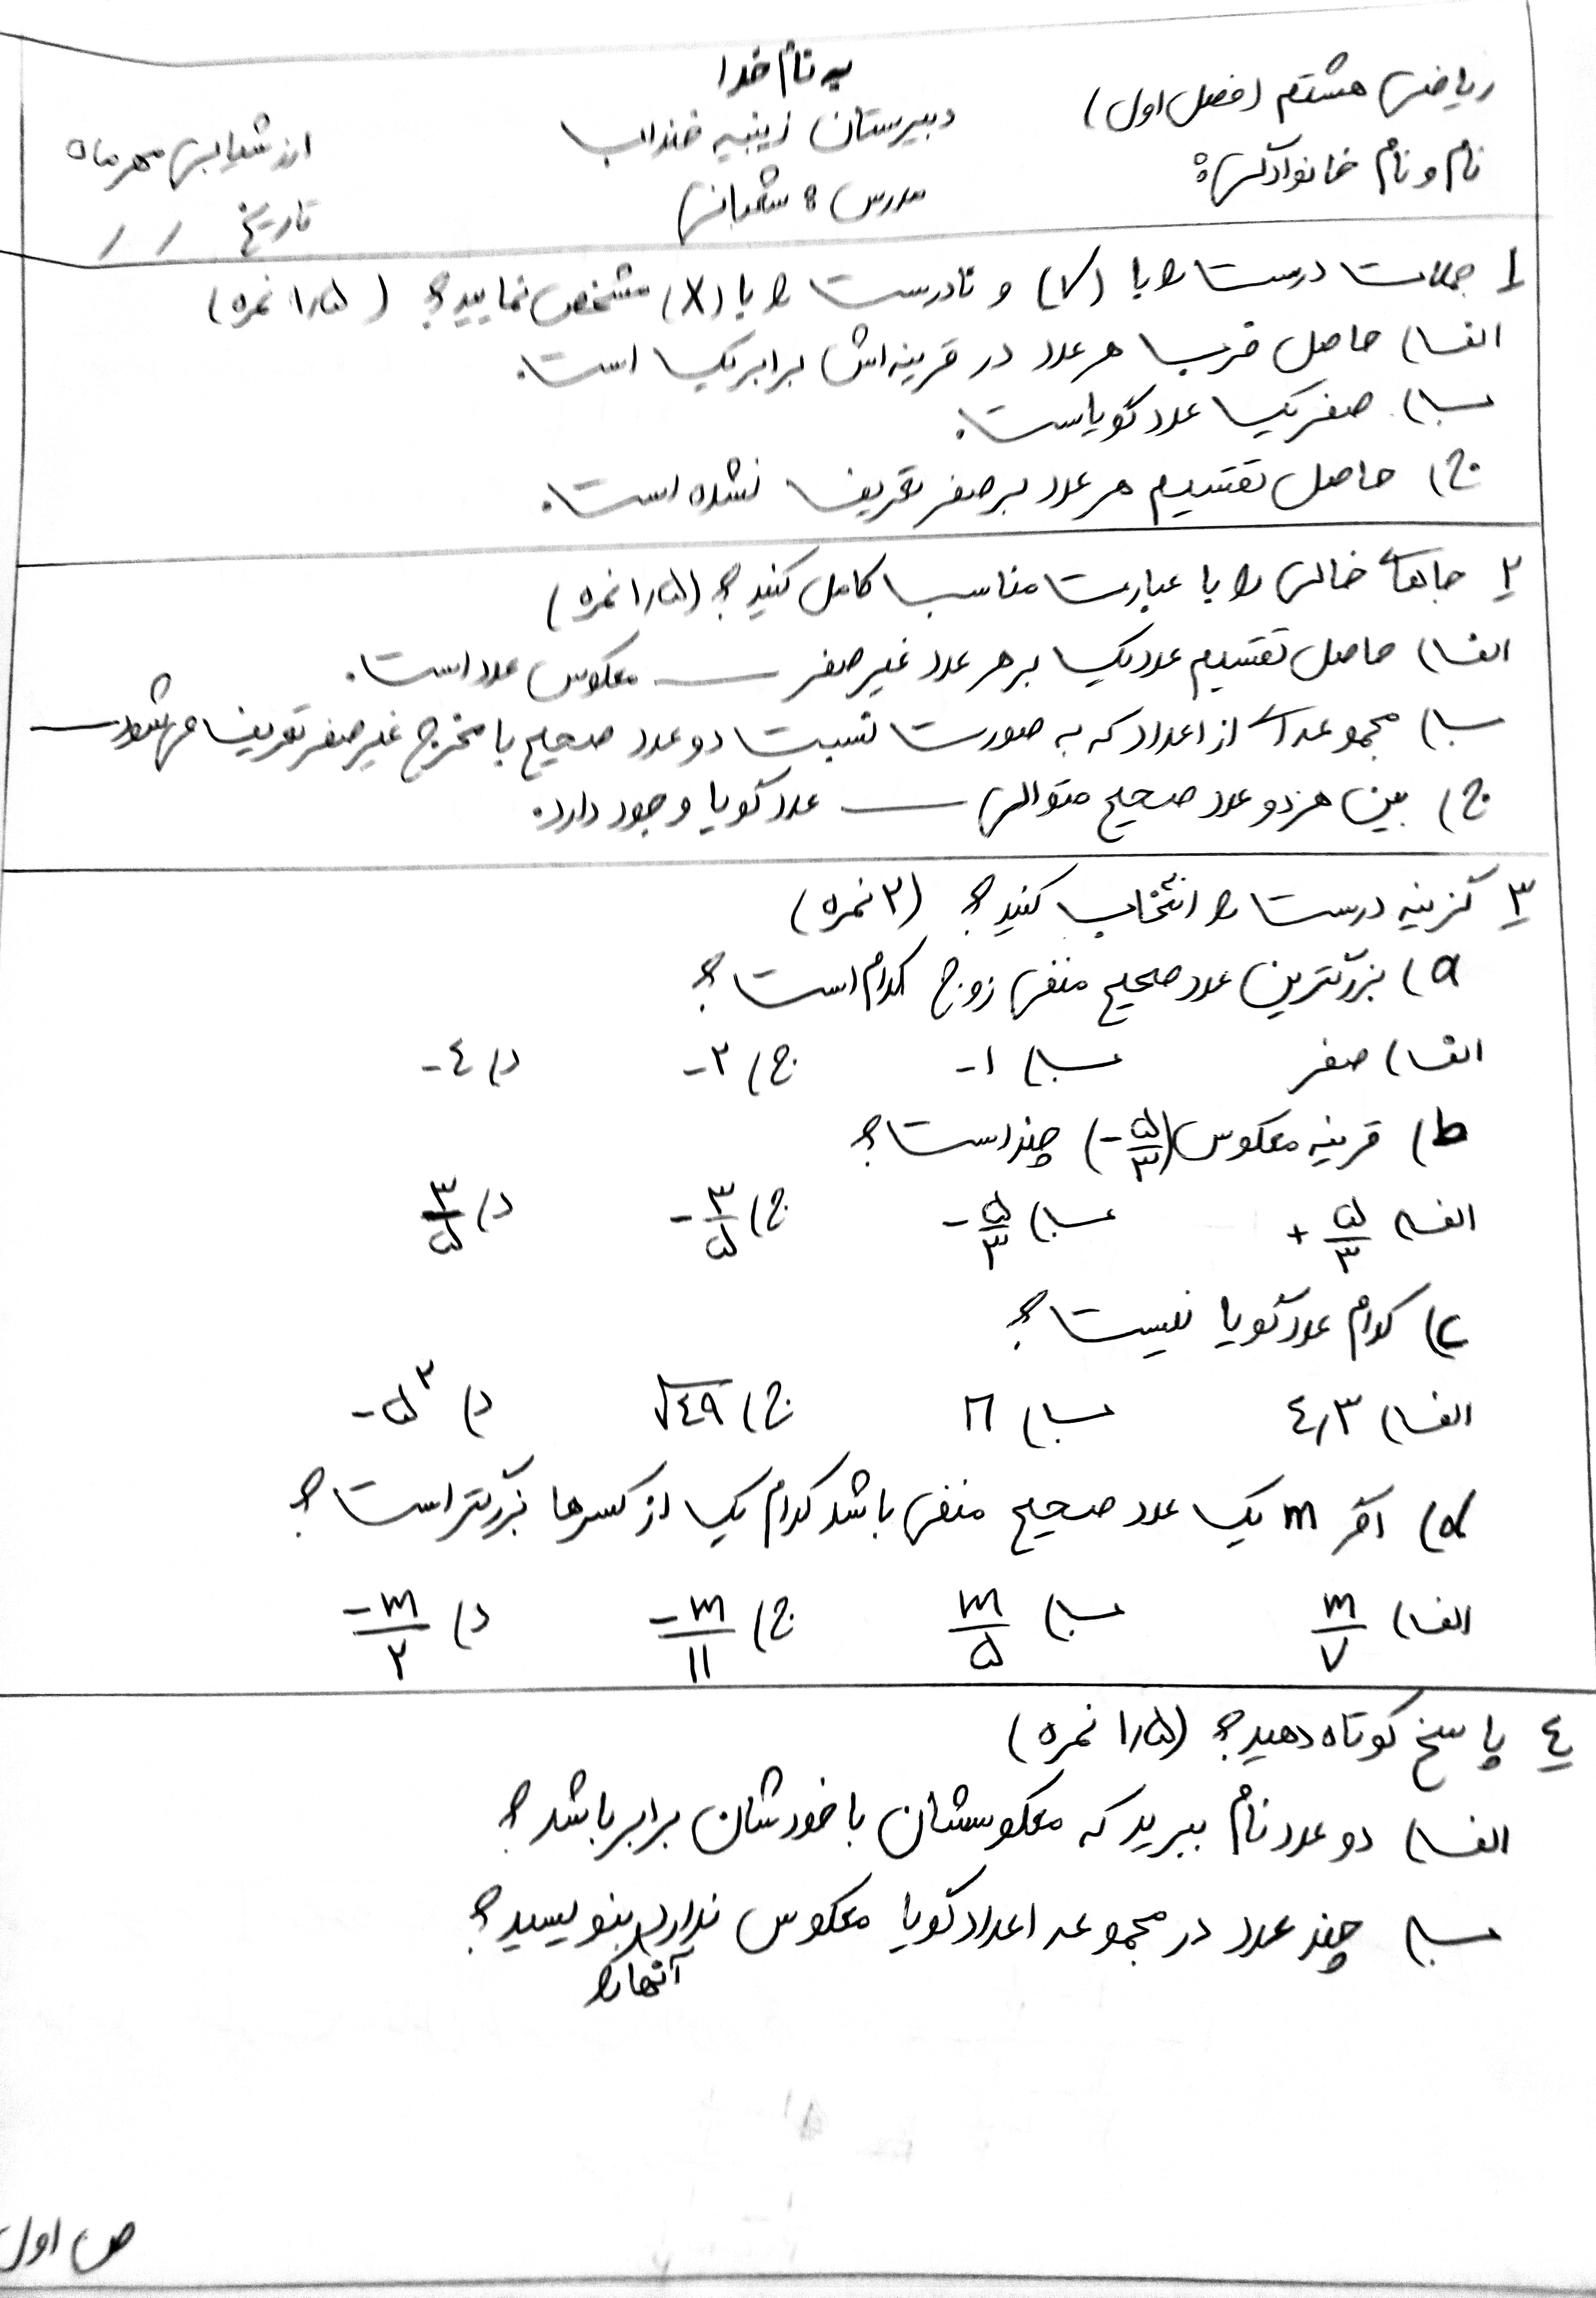 به نام خدا
ریاضی هشتم (فصل اول)
دبیرستان زینبیه خنداب
ارزشیابی مهرماه
نام و نام خانوادگی:
مدرس: شعبانی
تاریخ / /
۱ جملات درست را با (✓) و نادرست را با (X) مشخص نمایید؟ (۱٫۵ نمره)
الف) حاصل ضرب هر عدد در قرینه‌اش برابر یک است.
ب) صفر یک عدد گویاست.
ج) حاصل تقسیم هر عدد بر صفر تعریف نشده است.
۲ جاهای خالی را با عبارت مناسب کامل کنید؟ (۱٫۵ نمره)
الف) حاصل تقسیم عدد یک بر هر عدد غیر صفر ـــ معکوس عدد است.
ب) مجموعه‌ای از اعداد که به صورت نسبت دو عدد صحیح با مخرج غیر صفر تعریف می‌شود ـــ
ج) بین هر دو عدد صحیح متوالی ـــ عدد گویا وجود دارد.
۳ گزینه درست را انتخاب کنید؟ (۲ نمره)
a) بزرگترین عدد صحیح منفی زوج کدام است؟
الف) صفر ب) -۱ ج) -۲ د) -٤
b) قرینه معکوس (-۵/۳) چند است؟
الف) +۵/۳ ب) -۵/۳ ج) -۳/۵ د) ۳/۵
c) کدام عدد گویا نیست؟
الف) ٤٫۳ ب) π ج) √٤۹ د) -۵^۲
d) اگر m یک عدد صحیح منفی باشد کدام یک از کسرها بزرگتر است؟
الف) m/۷ ب) m/۵ ج) -m/۱۱ د) -m/۲
٤ پاسخ کوتاه دهید؟ (۱٫۵ نمره)
الف) دو عدد نام ببرید که معکوسشان با خودشان برابر باشد؟
ب) چند عدد در مجموعه اعداد گویا معکوس ندارد آنها را بنویسید؟
ص اول